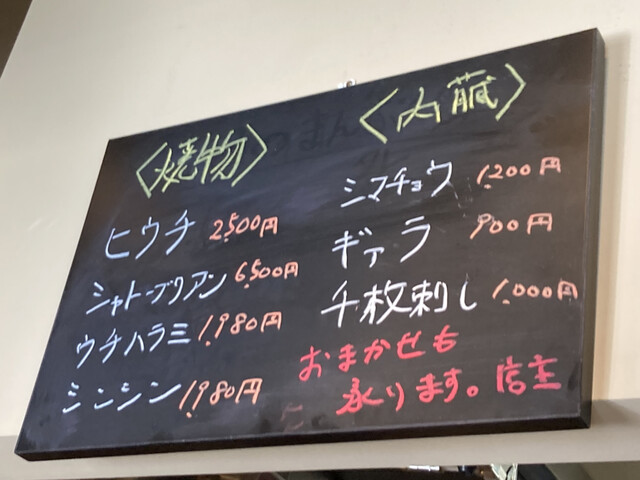 〈焼物〉
ヒウチ 2,500円
シャトーブリアン 6,500円
ウチハラミ 1,980円
シンシン 1,980円
〈内臓〉
シマチョウ 1,200円
ギアラ 900円
千枚刺し 1,000円
おまかせも
承ります。店主